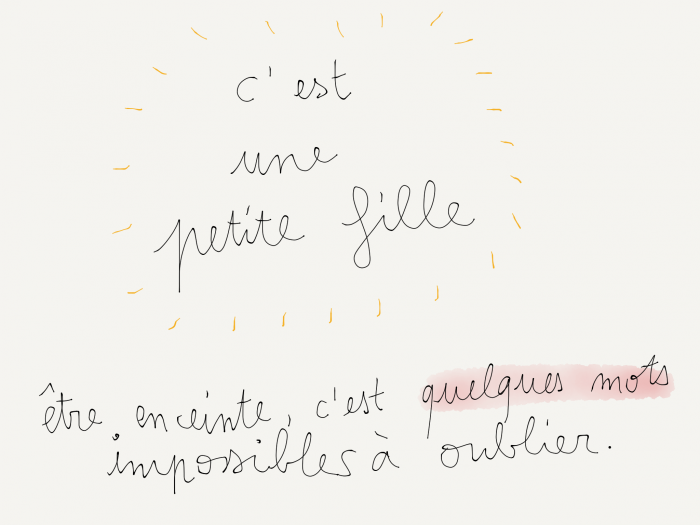 c'est
une
petite fille
être enceinte, c'est quelques mots
impossibles à oublier.